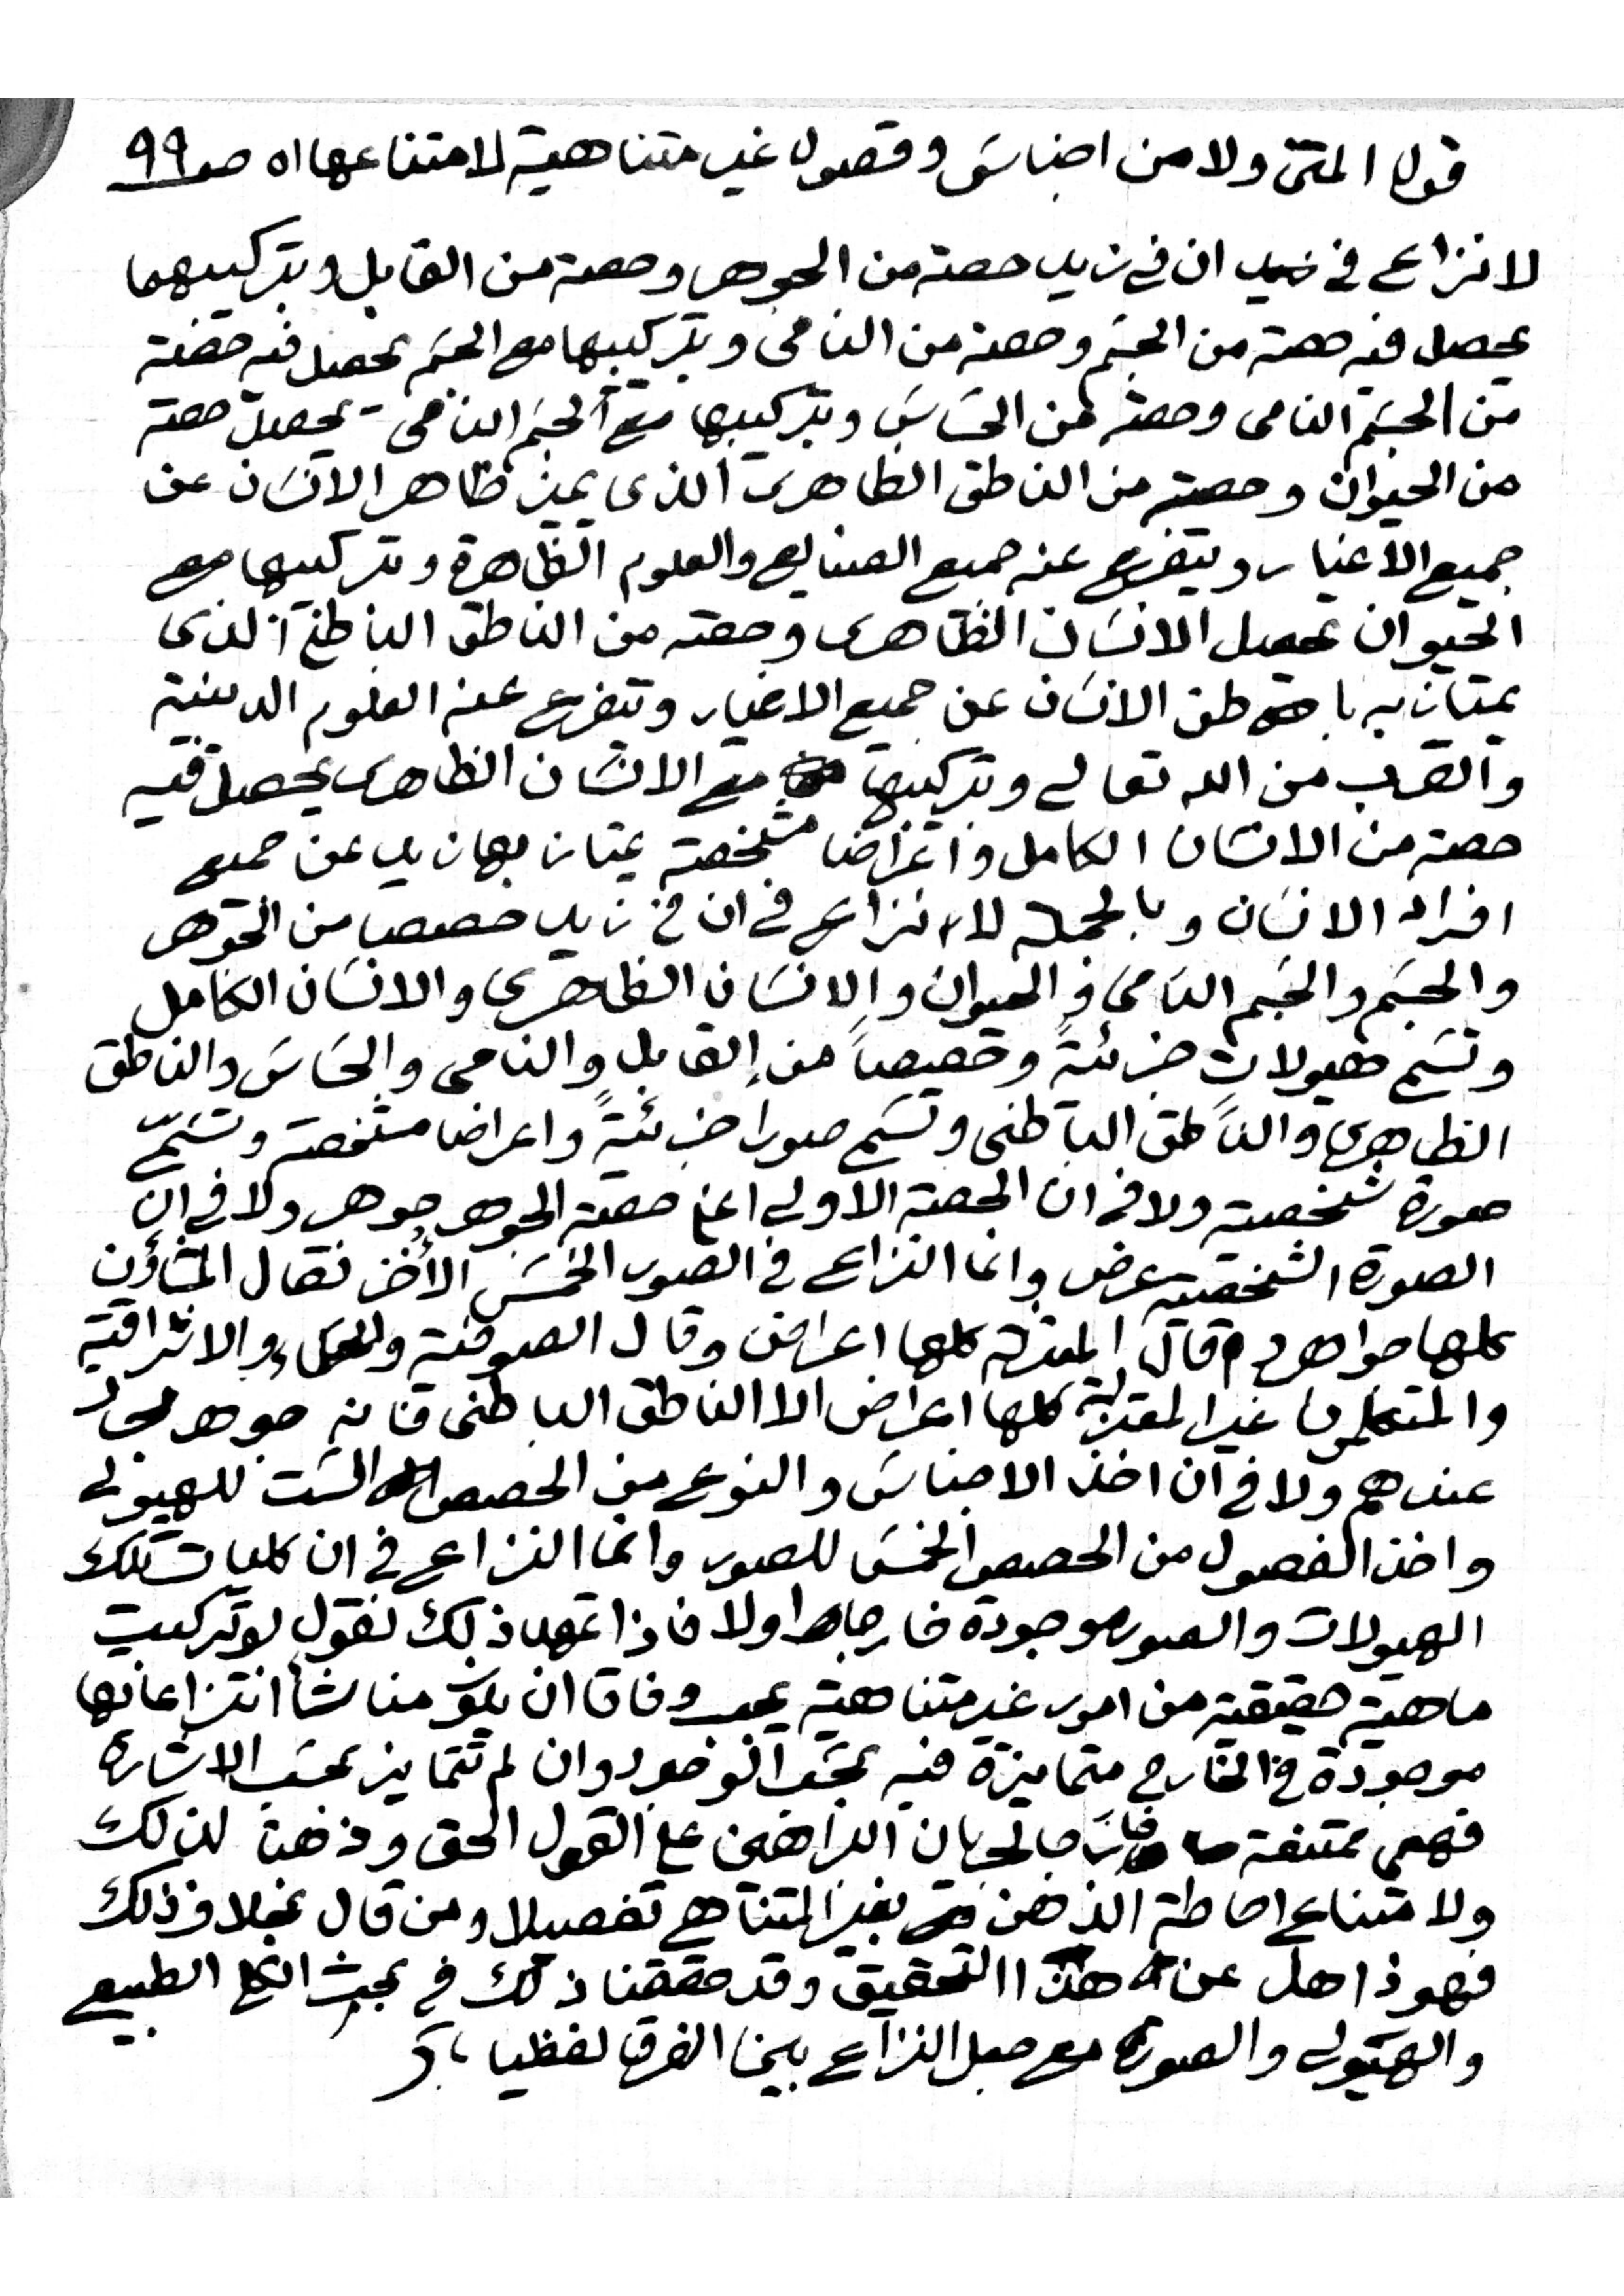 قول المتن ولا من اجناس وفصول غير متناهية لامتناعها اه صـ ٩٩
لا نزاع فى ان فى زيد حصة من الجوهر وحصة من القابل وبتركيبهما
يحصل فيه حصة من الجسم وحصة من النامى وبتركيبها مع الجسم يحصل فيه حصة
من الجسم النامى وحصة من الحساس وبتركيبها مع الجسم النامى يحصل حصة
من الحيوان وحصة من الناطق الظاهرى الذى يميز ظاهر الانسان عن
جميع الاغيار ويتفرع عنه جميع الصنايع والعلوم الظاهرة وبتركيبها مع
الحيوان يحصل الانسان الظاهرى وحصة من الناطق الباطنى الذى
يمتاز به باطن الانسان عن جميع الاغيار وتتفرع عنه العلوم الدينية
والقرب من الله تعالى وبتركيبها مع الانسان الظاهرى يحصل فيه
حصة من الانسان الكامل واعراضا مشخصة يمتاز بها زيد عن جميع
افراد الانسان وبالجملة لا نزاع فى ان فى زيد حصصا من الجوهر
والجسم والجسم النامى والحيوان والانسان الظاهرى والانسان الكامل
وتسمى هيولات جزئيةً وحصصاً من القابل والنامى والحساس والناطق
الظاهرى والناطق الباطنى وتسمى صورا جزئيةً واعراضا مشخصة وتسمّى
صورة شخصية ولا فى ان الحصة الاولى اعنى حصة الجوهر جوهر ولا فى ان
الصورة الشخصية عرض وانما النزاع فى الصور الخمس الأخر فقال المشاؤن
كلها جواهر وقال المعتزلة كلها اعراض وقال الصوفية والحكماء الاشراقية
والمتكلمون غير المعتزلة كلها اعراض الا الناطق الباطنى فانه جوهر مجرد
عندهم ولا فى ان اخذ الاجناس والنوع من الحصص الست للهيولى
واخذ الفصول من الحصص الخمس للصور وانما النزاع فى ان كليات تلك
الهيولات والصور موجودة خارجا اولا فاذا تمهد ذلك نقول لو تركبت
ماهية حقيقية من امور غير متناهية يجب وفاقا ان يكون مناشأ انتزاعاتها
موجودة فى الخارج متمايزة فيه بحسب الوجود وان لم تتمايز بحسب الاشارة
فهى ممتنعة خارجا لجريان البراهين على القول الحق وذهنا لذلك
ولامتناع احاطة الذهن بغير المتناهى تفصيلا ومن قال بخلاف ذلك
فهو ذاهل عن هذا التحقيق وقد حققنا ذلك فى بحث الكلى الطبيعى
والهيولى والصورة مع جعل النزاع بين الفرق لفظيا